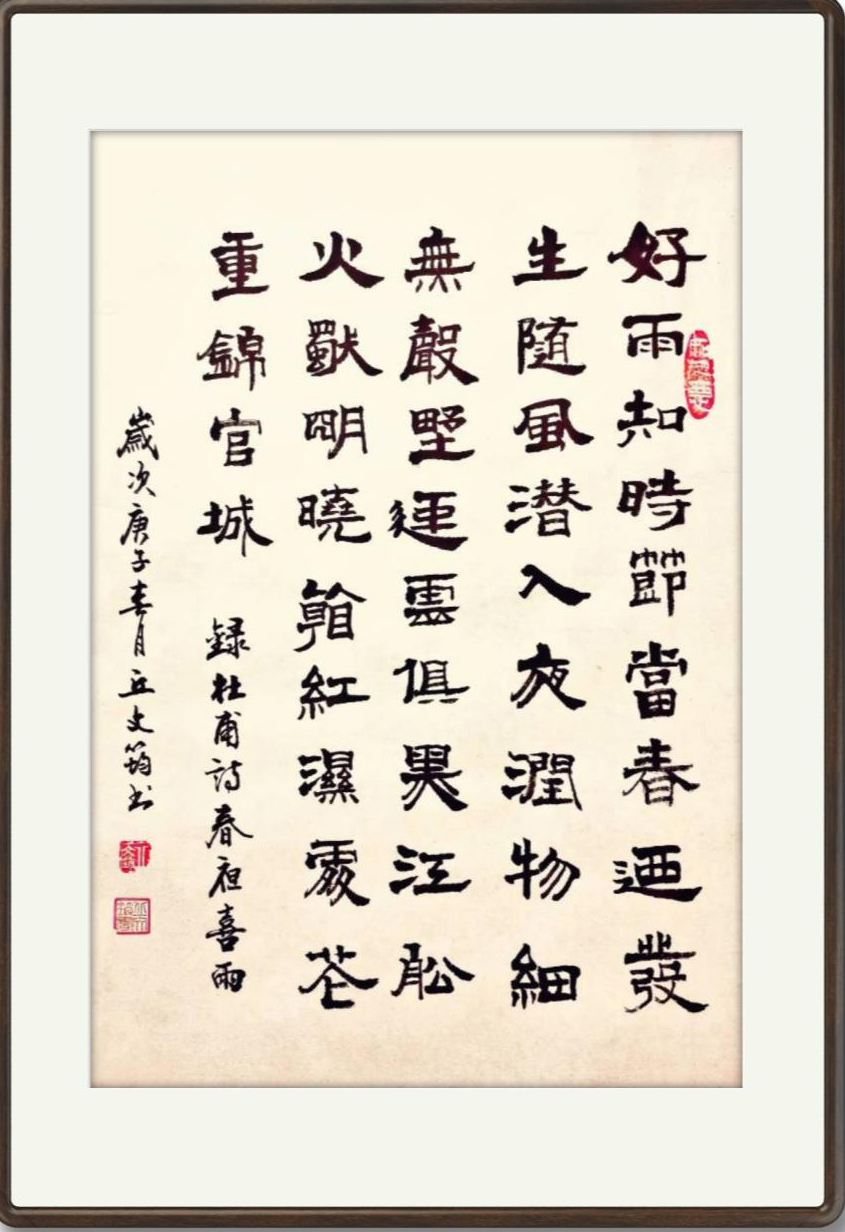 好雨知時節當春迺發
生随風潜入夜潤物細
無聲野逕雲俱黑江舩
火獨明曉看紅濕處花
重錦官城 録杜甫詩春夜喜雨
歲次庚子春月丘文筠书